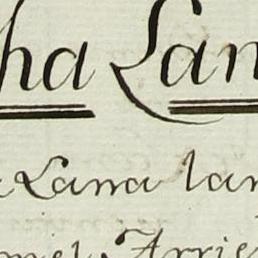 ha Lan
Lama lan
mel Arrie